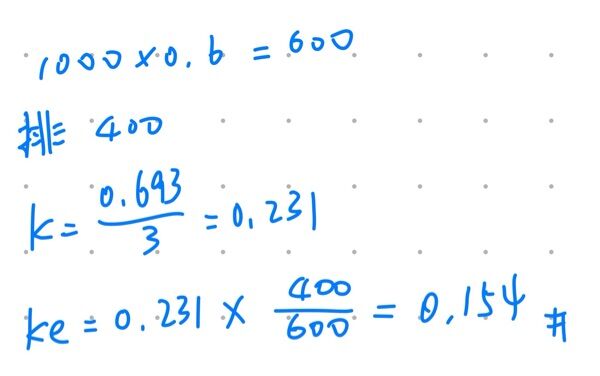 1000 × 0.6 = 600
排 400
k = 0.693 / 3 = 0.231
ke = 0.231 × 400 / 600 = 0.154 #